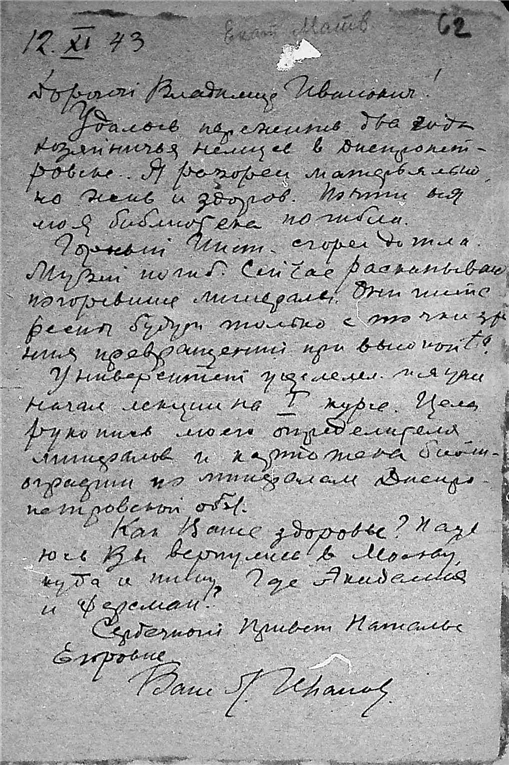 62
12. XI 43
Дорогой Владимир Иванович!
Удалось пережить два года
хозяйничья немцев в Днепропет-
ровске. Я разорен матерьяльно,
но жив и здоров. Почти вся
моя библиотека погибла.
Горный Инст. сгорел дотла.
Музей погиб. Сейчас раскапываю
погоревшие минералы. Они инте
ресны будут только с точки зре
ния превращений при высокой t°.
Университет уцелел и я уже
начал лекции на I курсе. Цела
рукопись моего определителя
минералов и картотека библи-
ографии по минералам Днепро-
петровской обл.
Как Ваше здоровье? Наде
юсь Вы вернулись в Москву,
куда и пишу. Где Академия
и Ферсман?
Сердечный привет Наталье
Егоровне
Ваш Л. Иванов.